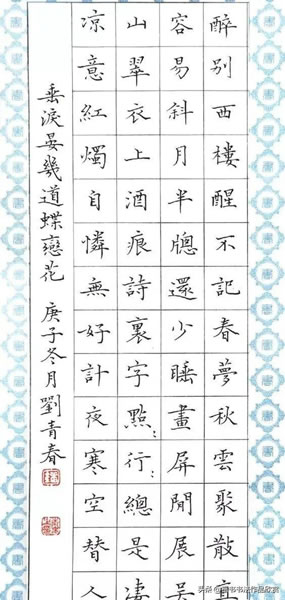 醉别西樓醒不記春夢秋雲聚散真
容易斜月半牕還少睡畫屏閒展吴
山翠衣上酒痕詩裏字點〻行〻總是淒
凉意紅燭自憐無好計夜寒空替人
垂淚晏幾道蝶戀花 庚子冬月劉青春
头条
书法作品欣赏